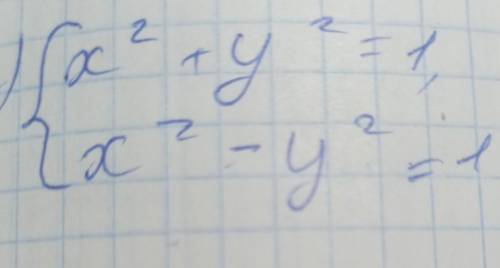 ) { x² + y² = 1,
x² - y² = 1